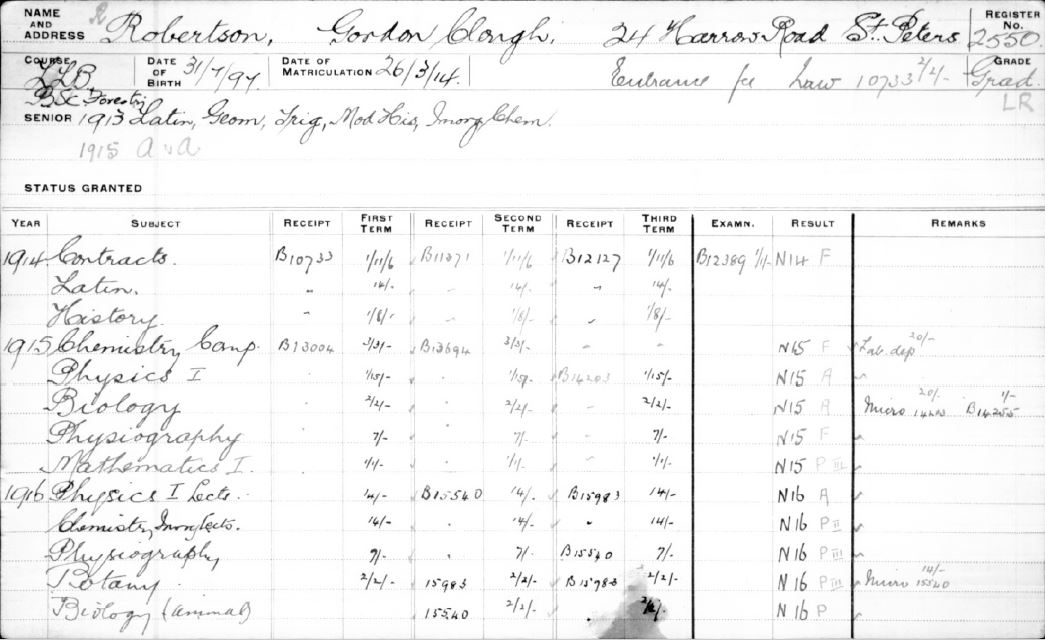 NAME AND ADDRESS R Robertson, Gordon Clough, 24 Harrow Road St. Peters REGISTER No. 2550.
COURSE LLB. DATE OF BIRTH 31/7/97. DATE OF MATRICULATION 26/3/14. Entrance fee Law 10733 2/2/- GRADE Grad.
BSc Forestry LR
SENIOR 1913 Latin, Geom, Trig, Mod His, Inorg Chem.
1915
STATUS GRANTED
YEAR SUBJECT RECEIPT FIRST TERM RECEIPT SECOND TERM RECEIPT THIRD TERM EXAMN. RESULT REMARKS
1914 Contracts. B10733 1/11/6 1/11/6 B12127 1/11/6 B12389 N14 F
Latin. " 14/- - 14/- " 14/-
History. " 1/8/- - 1/8/- " 1/8/-
1915 Chemistry Comp. B13004 3/3/- B13694 3/3/- - - N15 F Lab. dep 20/-
Physics I 1/15/- 1/15/- B14203 1/15/- N15 A
Biology 2/2/- 2/2/- - 2/2/- N15 A Micro 20/- 1/-
Physiography 7/- 7/- - 7/- N15 F
Mathematics I. 1/1/- 1/1/- 1/1/- N15 P III
1916 Physics I Lects. 14/- B15540 14/- B15983 14/- N16 A
Chemistry, Inorg Lects. 14/- 14/- " 14/- N16 P II
Physiography 7/- 7/- B15540 7/- N16 P III
Botany 2/2/- 15983 2/2/- B15983 2/2/- N16 P III Micro 14/- 15540
Biology (animal) 15540 2/2/- 2/2/- N16 P